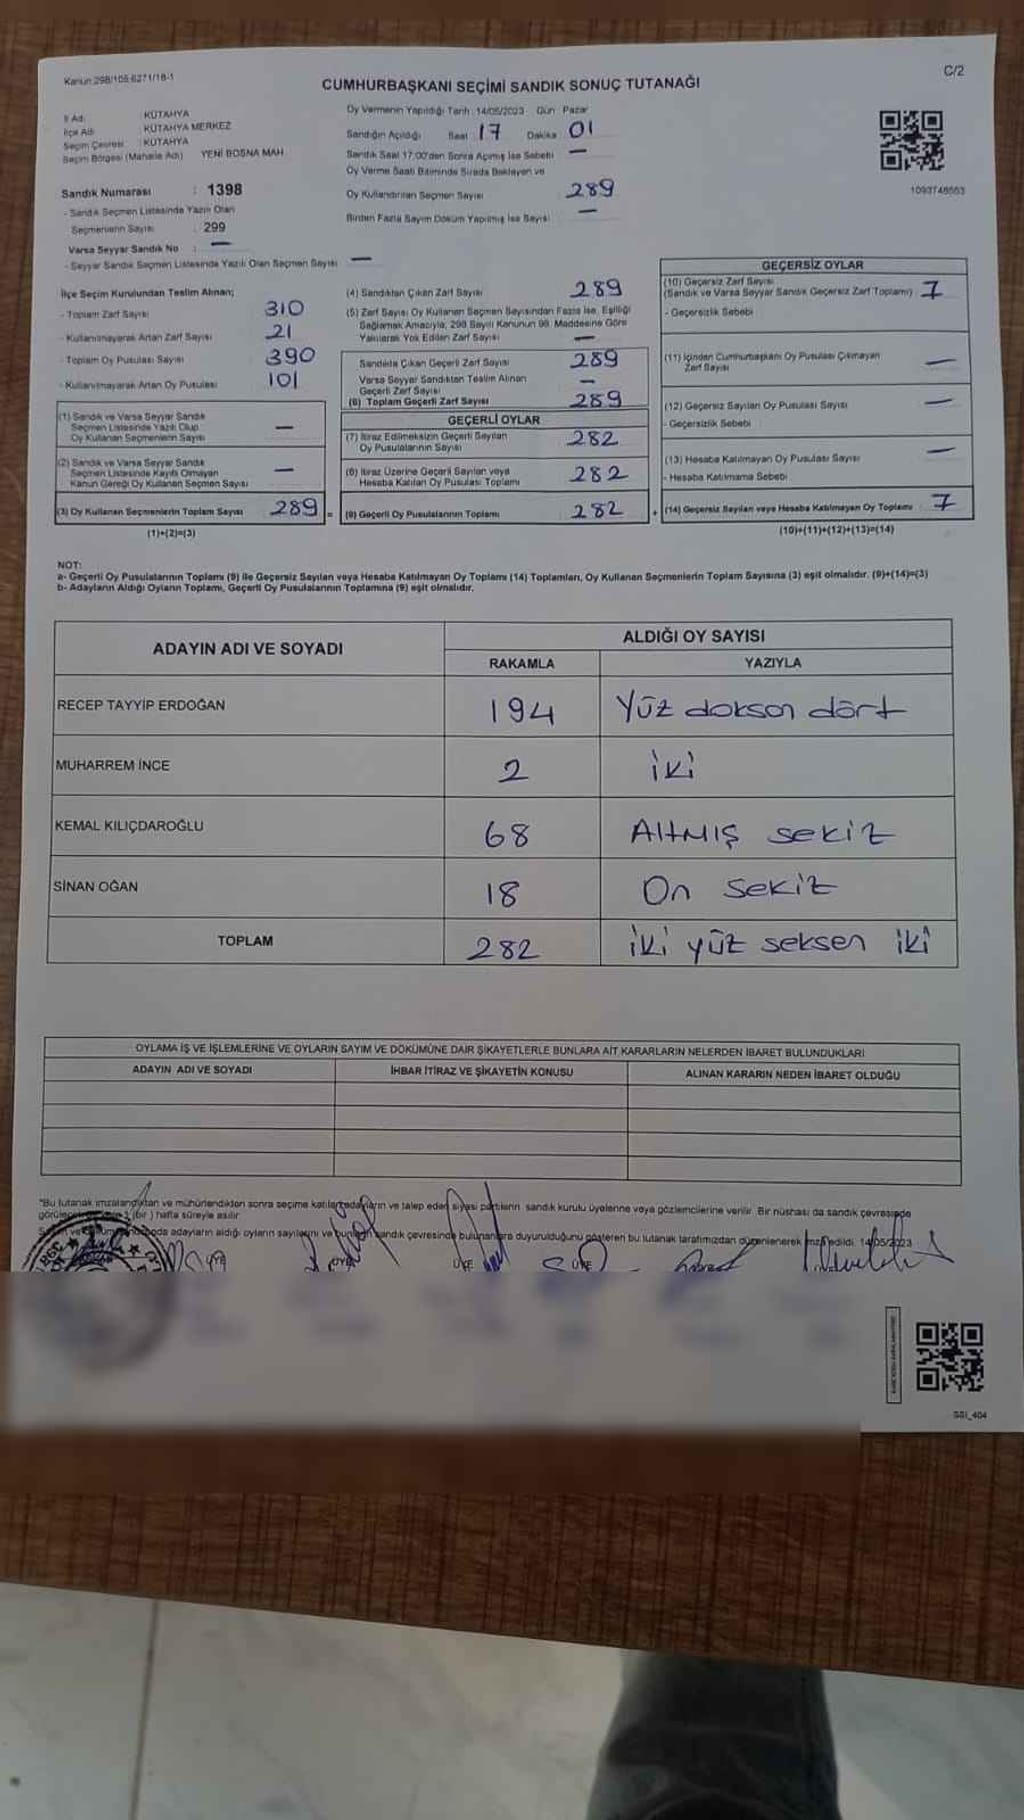 Kanun:298/105-6271/18-1
C/2
CUMHURBAŞKANI SEÇİMİ SANDIK SONUÇ TUTANAĞI
İl Adı : KÜTAHYA
İlçe Adı : KÜTAHYA MERKEZ
Seçim Çevresi : KÜTAHYA
Seçim Bölgesi (Mahalle Adı) YENİ BOSNA MAH
Sandık Numarası : 1398
- Sandık Seçmen Listesinde Yazılı Olan
Seçmenlerin Sayısı 299
Varsa Seyyar Sandık No : —
- Seyyar Sandık Seçmen Listesinde Yazılı Olan Seçmen Sayısı —
Oy Vermenin Yapıldığı Tarih : 14/05/2023 Gün : Pazar
Sandığın Açıldığı Saat : 17 Dakika 01
Sandık Saat 17:00'den Sonra Açılmış İse Sebebi —
Oy Verme Saati Bitiminde Sırada Bekleyen ve
Oy Kullandırılan Seçmen Sayısı 289
Birden Fazla Sayım Döküm Yapılmış İse Sayısı —
1093748663
İlçe Seçim Kurulundan Teslim Alınan;
- Toplam Zarf Sayısı 310
- Kullanılmayarak Artan Zarf Sayısı 21
- Toplam Oy Pusulası Sayısı 390
- Kullanılmayarak Artan Oy Pusulası 101
(1) Sandık ve Varsa Seyyar Sandık
Seçmen Listesinde Yazılı Olup
Oy Kullanan Seçmenlerin Sayısı —
(2) Sandık ve Varsa Seyyar Sandık
Seçmen Listesinde Kayıtlı Olmayan
Kanun Gereği Oy Kullanan Seçmen Sayısı —
(3) Oy Kullanan Seçmenlerin Toplam Sayısı 289 =
(1)+(2)=(3)
(4) Sandıktan Çıkan Zarf Sayısı 289
(5) Zarf Sayısı Oy Kullanan Seçmen Sayısından Fazla İse, Eşitliği
Sağlamak Amacıyla, 298 Sayılı Kanunun 98. Maddesine Göre
Yakılarak Yok Edilen Zarf Sayısı —
Sandıkta Çıkan Geçerli Zarf Sayısı 289
Varsa Seyyar Sandıktan Teslim Alınan
Geçerli Zarf Sayısı —
(6) Toplam Geçerli Zarf Sayısı 289
GEÇERLİ OYLAR
(7) İtiraz Edilmeksizin Geçerli Sayılan
Oy Pusulalarının Sayısı 282
(8) İtiraz Üzerine Geçerli Sayılan veya
Hesaba Katılan Oy Pusulası Toplamı 282
(9) Geçerli Oy Pusulalarının Toplamı 282 +
GEÇERSİZ OYLAR
(10) Geçersiz Zarf Sayısı
(Sandık ve Varsa Seyyar Sandık Geçersiz Zarf Toplamı) 7
- Geçersizlik Sebebi
(11) İçinden Cumhurbaşkanı Oy Pusulası Çıkmayan
Zarf Sayısı —
(12) Geçersiz Sayılan Oy Pusulası Sayısı —
- Geçersizlik Sebebi
(13) Hesaba Katılmayan Oy Pusulası Sayısı —
- Hesaba Katılmama Sebebi
(14) Geçersiz Sayılan veya Hesaba Katılmayan Oy Toplamı : 7
(10)+(11)+(12)+(13)=(14)
NOT:
a- Geçerli Oy Pusulalarının Toplamı (9) ile Geçersiz Sayılan veya Hesaba Katılmayan Oy Toplamı (14) Toplamları, Oy Kullanan Seçmenlerin Toplam Sayısına (3) eşit olmalıdır. (9)+(14)=(3)
b- Adayların Aldığı Oyların Toplamı, Geçerli Oy Pusulalarının Toplamına (9) eşit olmalıdır.
ADAYIN ADI VE SOYADI ALDIĞI OY SAYISI
RAKAMLA YAZIYLA
RECEP TAYYİP ERDOĞAN 194 Yüz doksan dört
MUHARREM İNCE 2 iki
KEMAL KILIÇDAROĞLU 68 Altmış sekiz
SİNAN OĞAN 18 On sekiz
TOPLAM 282 iki yüz seksen iki
OYLAMA İŞ VE İŞLEMLERİNE VE OYLARIN SAYIM VE DÖKÜMÜNE DAİR ŞİKAYETLERLE BUNLARA AİT KARARLARIN NELERDEN İBARET BULUNDUKLARI
ADAYIN ADI VE SOYADI İHBAR İTİRAZ VE ŞİKAYETİN KONUSU ALINAN KARARIN NEDEN İBARET OLDUĞU
"Bu tutanak imzalandıktan ve mühürlendikten sonra seçime katılan adayların ve talep eden siyasi partilerin sandık kurulu üyelerine veya gözlemcilerine verilir. Bir nüshası da sandık çevresinde
(bir) hafta süreyle asılır.
adayların aldığı oyların sayılarını ve bunların sandık çevresinde bulunanlara duyurulduğunu gösteren bu tutanak tarafımızdan düzenlenerek imza edildi. 14/05/2023
ÜYE ÜYE ÜYE
SSI_404